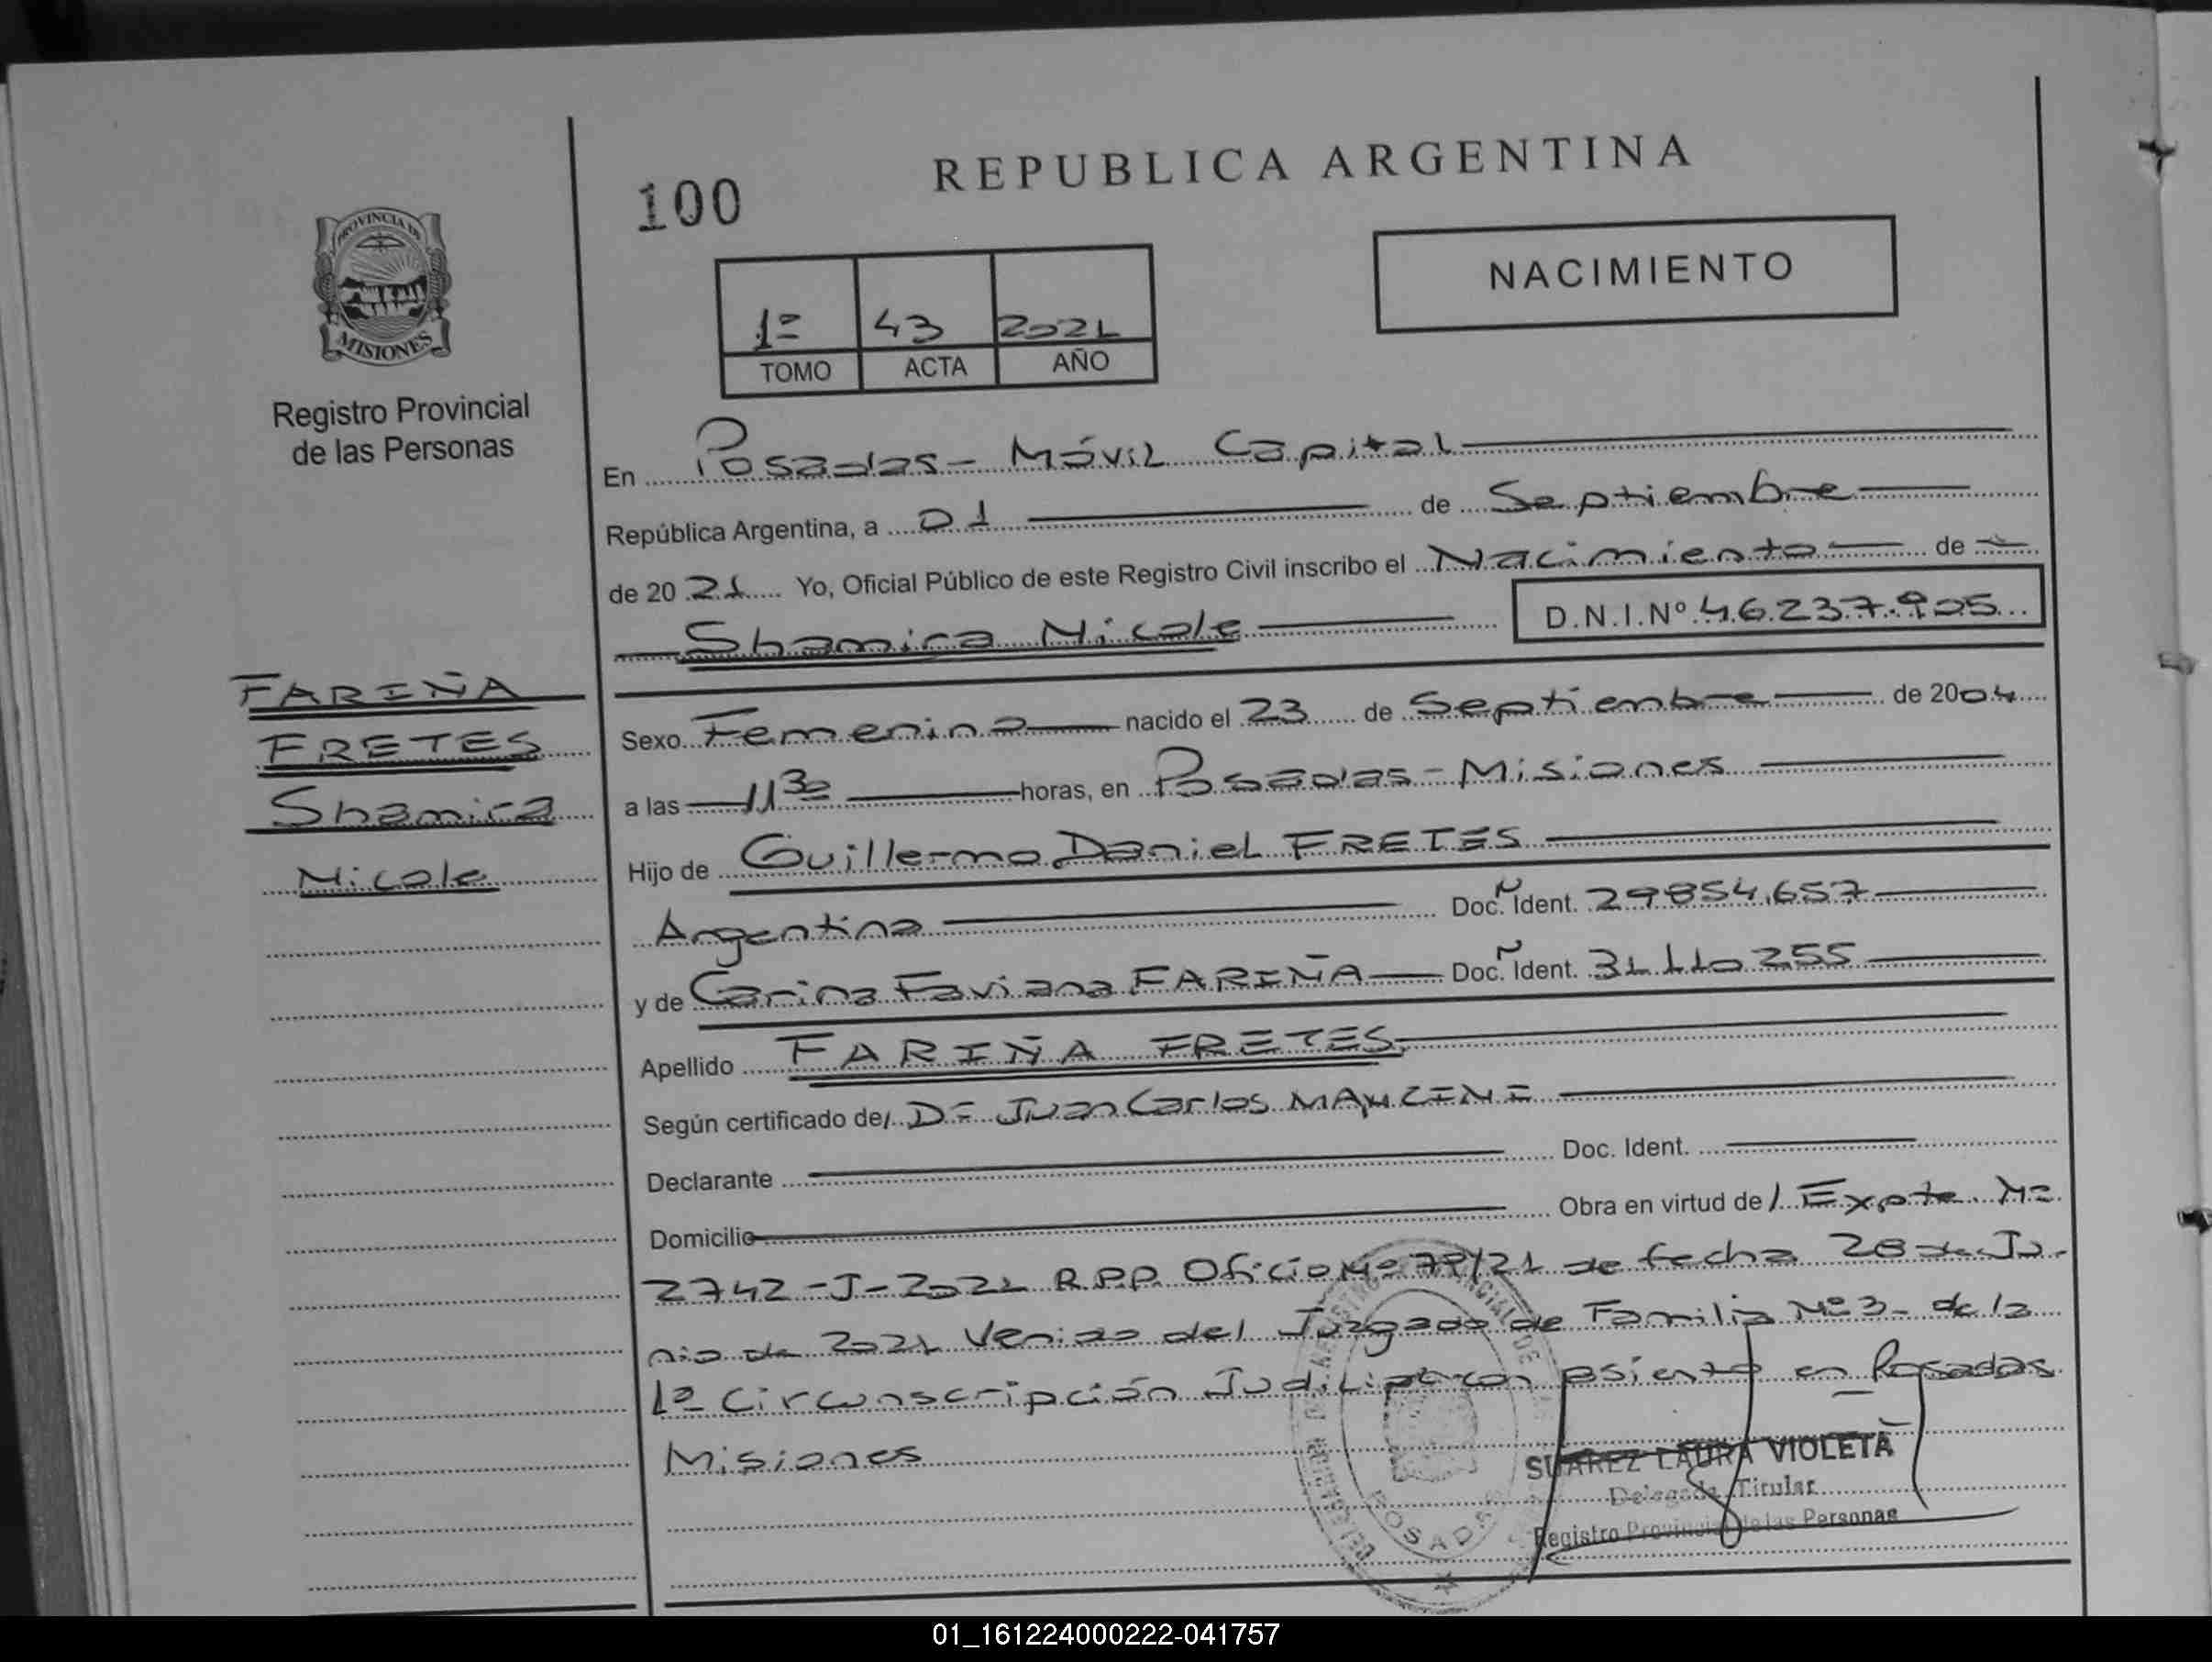 REPUBLICA ARGENTINA
100
PROVINCIA DE
MISIONES
Registro Provincial
de las Personas
NACIMIENTO
1º 43 2021
TOMO ACTA AÑO
En Posadas - Móvil Capital
República Argentina, a 01 de Septiembre
de 20 21 Yo, Oficial Público de este Registro Civil inscribo el Nacimiento de
Shamira Nicole D.N.I.Nº 46.237.905
FARIÑA
FRETES
Shamira
Nicole
Sexo Femenino nacido el 23 de Septiembre de 2004
a las 11 30 horas, en Posadas - Misiones
Hijo de Guillermo Daniel FRETES
Argentino Doc. Ident. 29854.657
y de Carina Faviana FARIÑA Doc. Ident. 31110255
Apellido FARIÑA FRETES
Según certificado de/ Dr Juan Carlos
Declarante Doc. Ident.
Domicilio Obra en virtud de/ Expte Nº
2742-J-2021 R.P.P. Oficio Nº 79/21 de fecha 28 de Ju-
nio de 2021 Venido del Juzgado de Familia Nº 3 - de la
1º Circunscripción Judicial con asiento en Posadas
Misiones
SUAREZ LAURA VIOLETA
Delegada Titular
Registro Provincial de las Personas
POSADAS
01_161224000222-041757